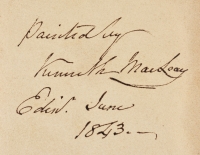 Painted by
Kenneth MacLeay
Edinr. June
1843.—